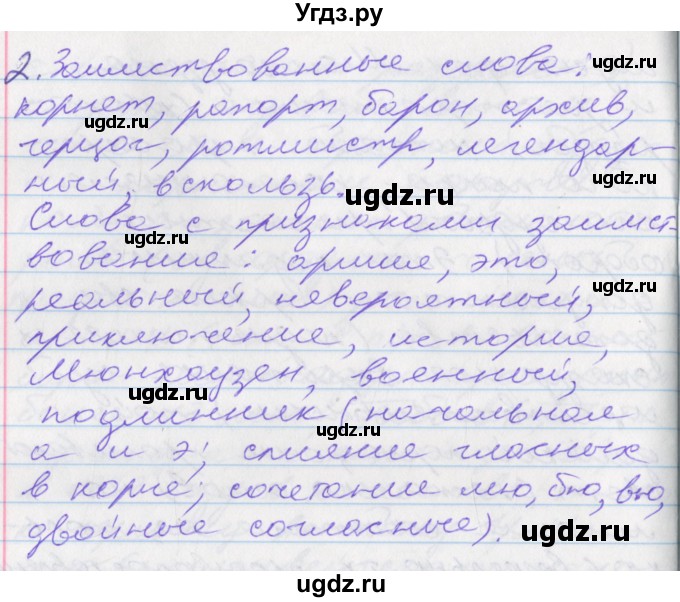 Угдз.ру
2. Заимствованные слова:
корнет, рапорт, барон, архив,
герцог, ротмистр, легендар-
ный, вскользь.
Слова с признаками заимст-
вование: армие, это,
реальный, невероятный,
приключение, история,
Мюнхаузен, военный,
подлинник (начальная
а и э; слияние гласных
в корне; сочетание мю, бю, вю,
двойные согласные).
ugdz.ru
ugdz.ru
ugdz.ru
ugdz.ru
ugdz.ru
ugdz.ru
ugdz.ru
ugdz.ru
ugdz.ru
ugdz.ru